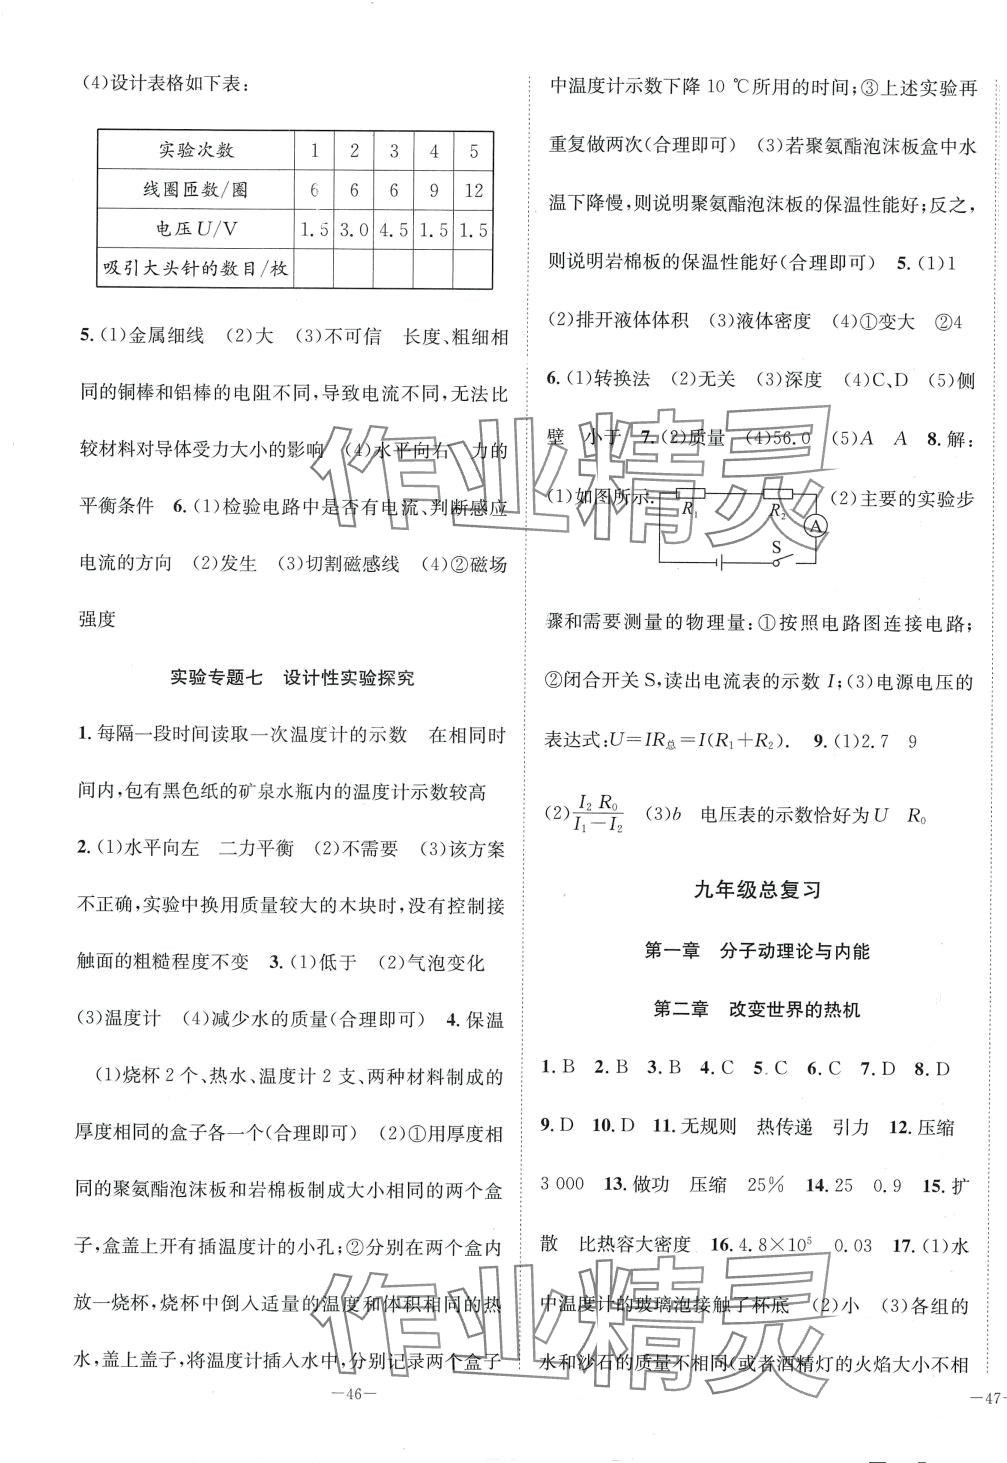 (4)设计表格如下表:
实验次数 1 2 3 4 5
线圈匝数/圈 6 6 6 9 12
电压U/V 1.5 3.0 4.5 1.5 1.5
吸引大头针的数目/枚
5.(1)金属细线 (2)大 (3)不可信 长度、粗细相
同的铜棒和铝棒的电阻不同,导致电流不同,无法比
较材料对导体受力大小的影响 (4)水平向右 力的
平衡条件 6.(1)检验电路中是否有电流、判断感应
电流的方向 (2)发生 (3)切割磁感线 (4)②磁场
强度
实验专题七 设计性实验探究
1.每隔一段时间读取一次温度计的示数 在相同时
间内,包有黑色纸的矿泉水瓶内的温度计示数较高
2.(1)水平向左 二力平衡 (2)不需要 (3)该方案
不正确,实验中换用质量较大的木块时,没有控制接
触面的粗糙程度不变 3.(1)低于 (2)气泡变化
(3)温度计 (4)减少水的质量(合理即可) 4.保温
(1)烧杯2个、热水、温度计2支、两种材料制成的
厚度相同的盒子各一个(合理即可) (2)①用厚度相
同的聚氨酯泡沫板和岩棉板制成大小相同的两个盒
子,盒盖上开有插温度计的小孔;②分别在两个盒内
放一烧杯,烧杯中倒入适量的温度和体积相同的热
水,盖上盖子,将温度计插入水中,分别记录两个盒子
—46—
中温度计示数下降10 ℃所用的时间;③上述实验再
重复做两次(合理即可) (3)若聚氨酯泡沫板盒中水
温下降慢,则说明聚氨酯泡沫板的保温性能好;反之,
则说明岩棉板的保温性能好(合理即可) 5.(1)1
(2)排开液体体积 (3)液体密度 (4)①变大 ②4
6.(1)转换法 (2)无关 (3)深度 (4)C、D (5)侧
壁 小于 7.(2)质量 (4)56.0 (5)A A 8.解:
(1)如图所示. R1 R2 A S (2)主要的实验步
骤和需要测量的物理量:①按照电路图连接电路;
②闭合开关S,读出电流表的示数I;(3)电源电压的
表达式:U=IR总=I(R1+R2). 9.(1)2.7 9
(2)I2 R0/I1-I2 (3)b 电压表的示数恰好为U R0
九年级总复习
第一章 分子动理论与内能
第二章 改变世界的热机
1.B 2.B 3.B 4.C 5.C 6.C 7.D 8.D
9.D 10.D 11.无规则 热传递 引力 12.压缩
3 000 13.做功 压缩 25% 14.25 0.9 15.扩
散 比热容大密度 16.4.8×10⁵ 0.03 17.(1)水
中温度计的玻璃泡接触了杯底 (2)小 (3)各组的
水和沙石的质量不相同(或者酒精灯的火焰大小不相
—47—
作业精灵
作业精灵